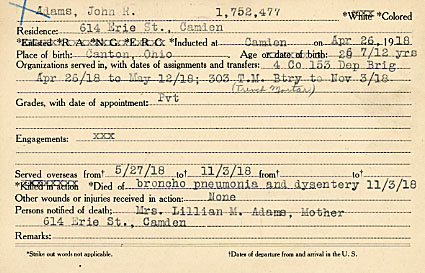 Adams, John R. 1,752,477 *White *Colored
Residence: 614 Erie St., Camden
*Enlisted *R.A. *N.G. *E.R.C. *Inducted at Camden on Apr 26, 1918
Place of birth: Canton, Ohio Age or date of birth: 26 7/12 yrs
Organizations served in, with dates of assignments and transfers: 4 Co 153 Dep Brig
Apr 26/18 to May 12/18; 303 T.M. Btry to Nov 3/18
(Trench Mortar)
Grades, with date of appointment: Pvt
Engagements: xxx
Served overseas from† 5/27/18 to† 11/3/18 from† to†
*Killed in action *Died of broncho pneumonia and dysentery 11/3/18
Other wounds or injuries received in action: None
Persons notified of death: Mrs. Lillian M. Adams, Mother
614 Erie St., Camden
Remarks:
*Strike out words not applicable. †Dates of departure from and arrival in the U. S.